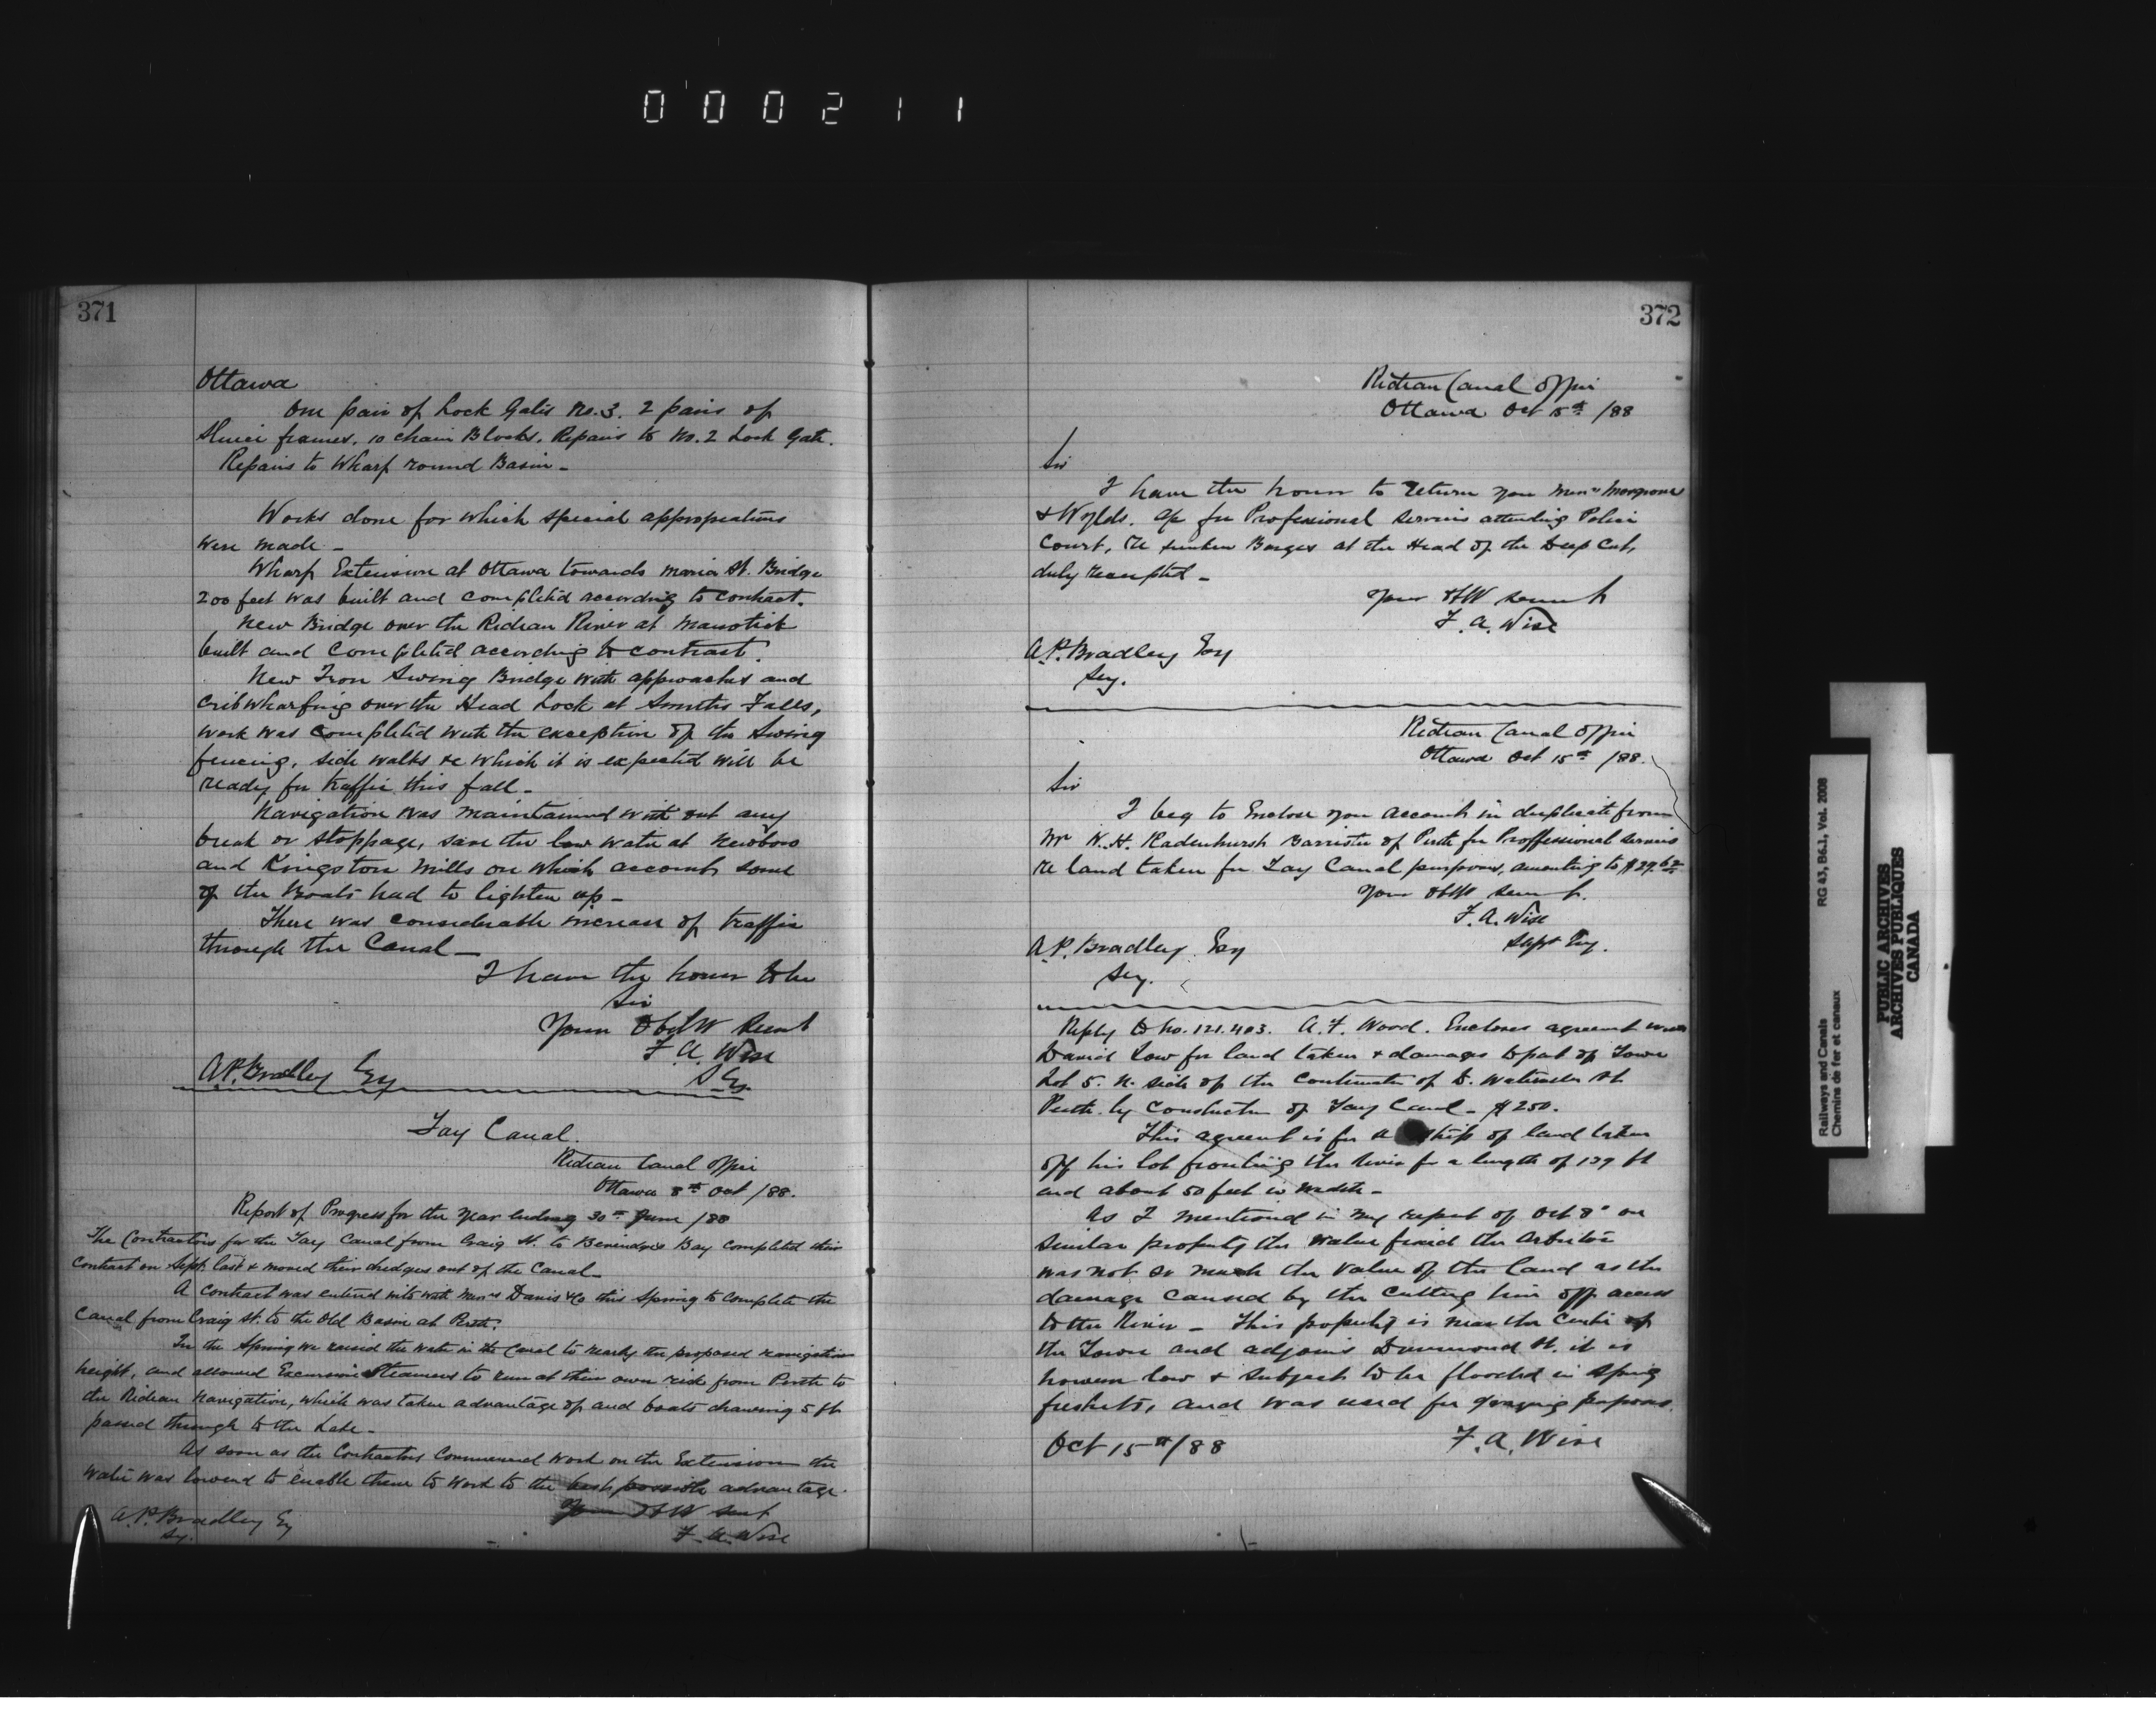 000211
371
Ottawa
One pair of Lock Gates No. 3. 2 pairs of
Sluice frames. 10 chain Blocks. Repairs to No. 2 Lock Gate.
Repairs to Wharf round Basin -
Works done for which special appropriations
were made -
Wharf Extension at Ottawa towards Maria St. Bridge
200 feet was built and completed according to contract.
New Bridge over the Rideau River at Manotick
built and completed according to contract.
New Iron Swing Bridge with approaches and
cribwharfing over the Head Lock at Smiths Falls,
work was completed with the exception of the Swing
fencing, side walks &c which it is expected will be
ready for traffic this fall -
Navigation was maintained with out any
break or stoppage, save the low water at Newboro
and Kingston Mills on which account some
of the Boats had to lighten up -
There was considerable increase of traffic
through the Canal -
I have the honor to be
Sir
Your Obdt Servt
F. A. Wise
S. E.
A.P. Bradley Esq
Tay Canal.
Rideau Canal Office
Ottawa 8th Oct /88.
Report of Progress for the year ending 30th June /88
The Contractors for the Tay Canal from Craig St. to Beveridges Bay completed their
contract on Sept. last & moved their dredges out of the Canal -
A contract was entered into with Messrs Davis & Co this Spring to complete the
Canal from Craig St. to the Old Basin at Perth.
In the Spring we raised the water in the Canal to nearly the proposed navigation
height, and allowed Excursion Steamers to run at their own risk from Perth to
the Rideau Navigation, which was taken advantage of and boats drawing 5 ft
passed through to the Lake -
As soon as the Contractors Commenced work on the Extension the
water was lowered to enable them to work to the best possible advantage.
Your Obdt Servt
F. A. Wise
A.P. Bradley Esq
Sy.
372
Rideau Canal Office
Ottawa Oct 15th /88
Sir
I have the honor to return you Messrs
& Wylds. a/c for Professional services attending Police
Court, re sunken Barges at the Head of the Deep Cut,
duly receipted -
Your Obdt servant
F. A. Wise
A.P. Bradley Esq
Sey.
Rideau Canal Office
Ottawa Oct 15th /88.
Sir
I beg to Enclose you accounts in duplicate from
Mr W. H. Radenhurst Barrister of Perth for Proffessional services
re land taken for Tay Canal purposes, amounting to $29.62
Your Obdt servt.
F. A. Wise
Supt Eng.
A.P. Bradley Esq
Sey.
Reply to No. 121.403. A. F. Wood. Encloses agreemt with
David Low for land taken & damages to part of Town
Lot 5. N. side of the continuatn of St
Perth by constructn of Tay Canal - $250.
This agreemt is for a strip of land taken
off his lot fronting the River for a length of 139 ft
and about 50 feet in width -
As I mentioned in my report of Oct 8th on
similar property the value fixed the Arbitor
was not so much the value of the land as the
damage caused by the cutting him off access
to the River - This property is near the Centre of
the Town and adjoins Drummond St. it is
however low & subject to be flooded in Spring
freshets, and was used for grazing purposes.
Oct 15th/88
F. A. Wise
Railways and Canals
Chemins de fer et canaux
RG 43, B6.1, Vol. 2008
PUBLIC ARCHIVES
ARCHIVES PUBLIQUES
CANADA